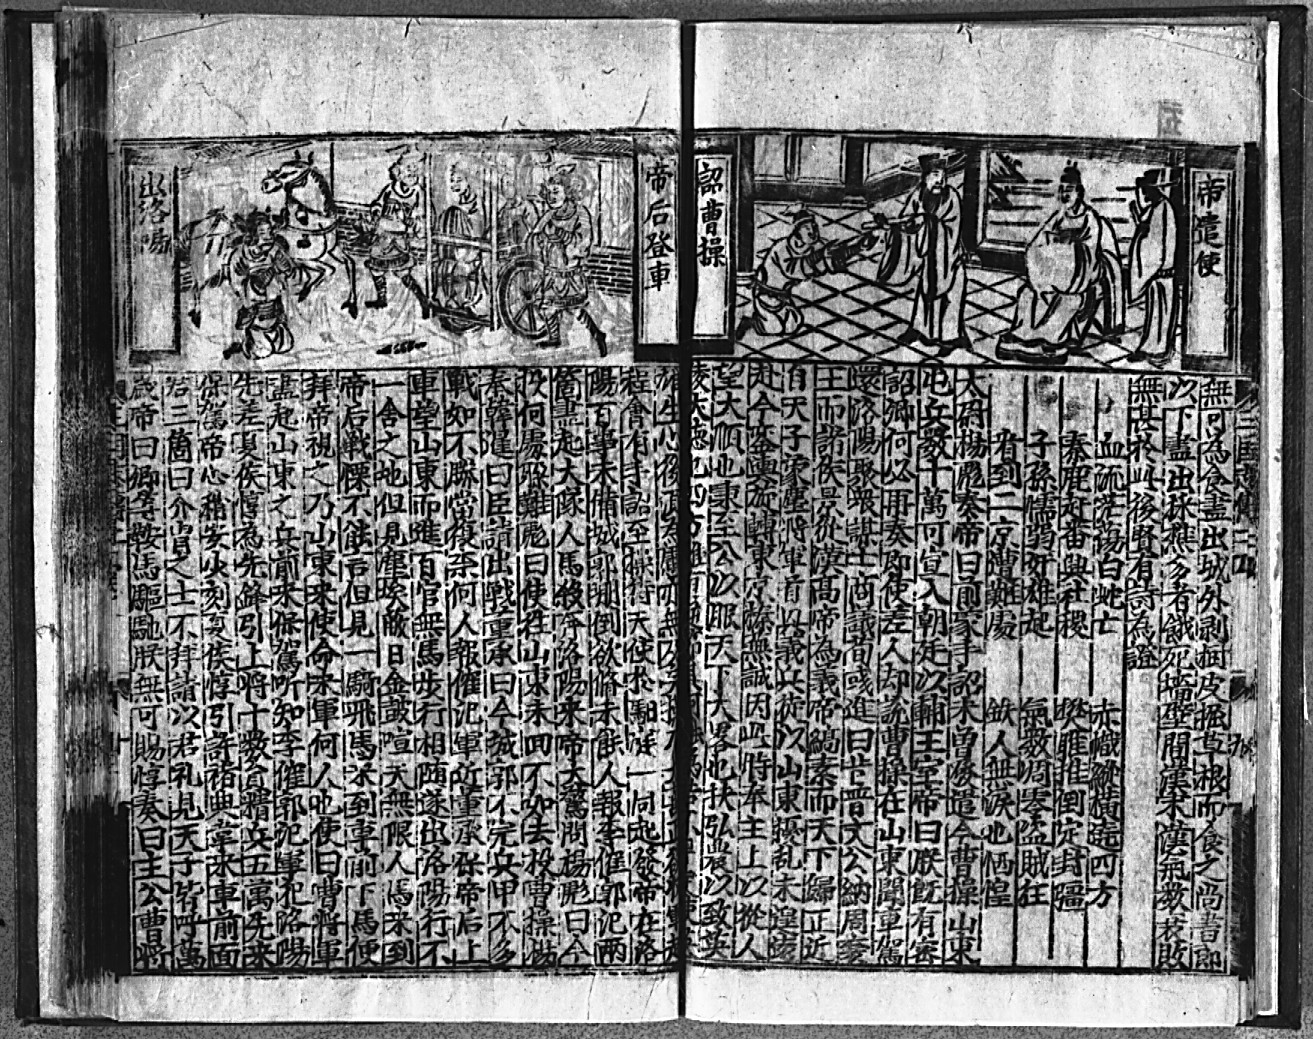 帝遣使
詔曹操
無可為食盡出城外剥樹皮掘草根而食之尚書郎
以下盡出採樵多者餓死墻壁間漢末漢氣數衰敗
無甚於此後賢有詩為證
血流茫蕩白蛇亡　赤幟縱橫遶四方
秦鹿赶番興社稷　楚騅推倒定封疆
子孫懦弱奸雄起　氣數凋零盗賊狂
看到二京遭難處　鉄人無淚也恓惶
太尉楊彪奏帝曰前蒙手詔未曽發遣今曹操山東
屯兵數十萬可宣入朝廷以輔王室帝曰朕既有寧
詔卿何必再奏即使差人却說曹操在山東聞車駕
還洛陽聚衆謀士商議荀彧進曰昔晋文公納周襄
王而諸侯景從漢高帝為義帝縞素而天下歸正近
自天子蒙塵將軍首以義兵徒以山東擾亂未遑遠
赴今鑾輿旋轉東京榛蕪誠因此時奉主上以從人
望大順也秉至公以服天下大畧也扶弘義以致英
程會有手詔至操待天使求馹
陽百事未備城郭崩倒欲脩未能人報李催郭汜兩
箇盡起大隊人馬殺奔洛陽来帝大驚問楊彪曰今
投何處躱難彪曰使往山東未回不如去投曹操楊
奉韓暹曰臣請出戰董承曰今城郭不完兵甲不多
戰如不勝當復柰何人報催汜軍近董承保帝后上
車望山東而進百官無馬步行相随遂出洛陽行不
一舍之地但見塵埃蔽日金鼓喧天無限人馬来到
帝后戰慄不能言但見一騎飛馬来到車前下馬便
拜帝視之乃山東来使命来軍何人也使曰曹將軍
盡起山東之兵前来保駕听知李催郭汜軍犯洛陽
先差夏侯惇為先鋒引上將十数員精兵五萬先来
保駕帝心稍安少刻夏侯惇引許禇典韋来車前面
君三箇曰介胄之士不拜請以君礼見天子皆呼萬
歲帝曰卿等鞍馬驅馳朕無可賜惇奏曰主公曹將
帝后登車
出洛陽